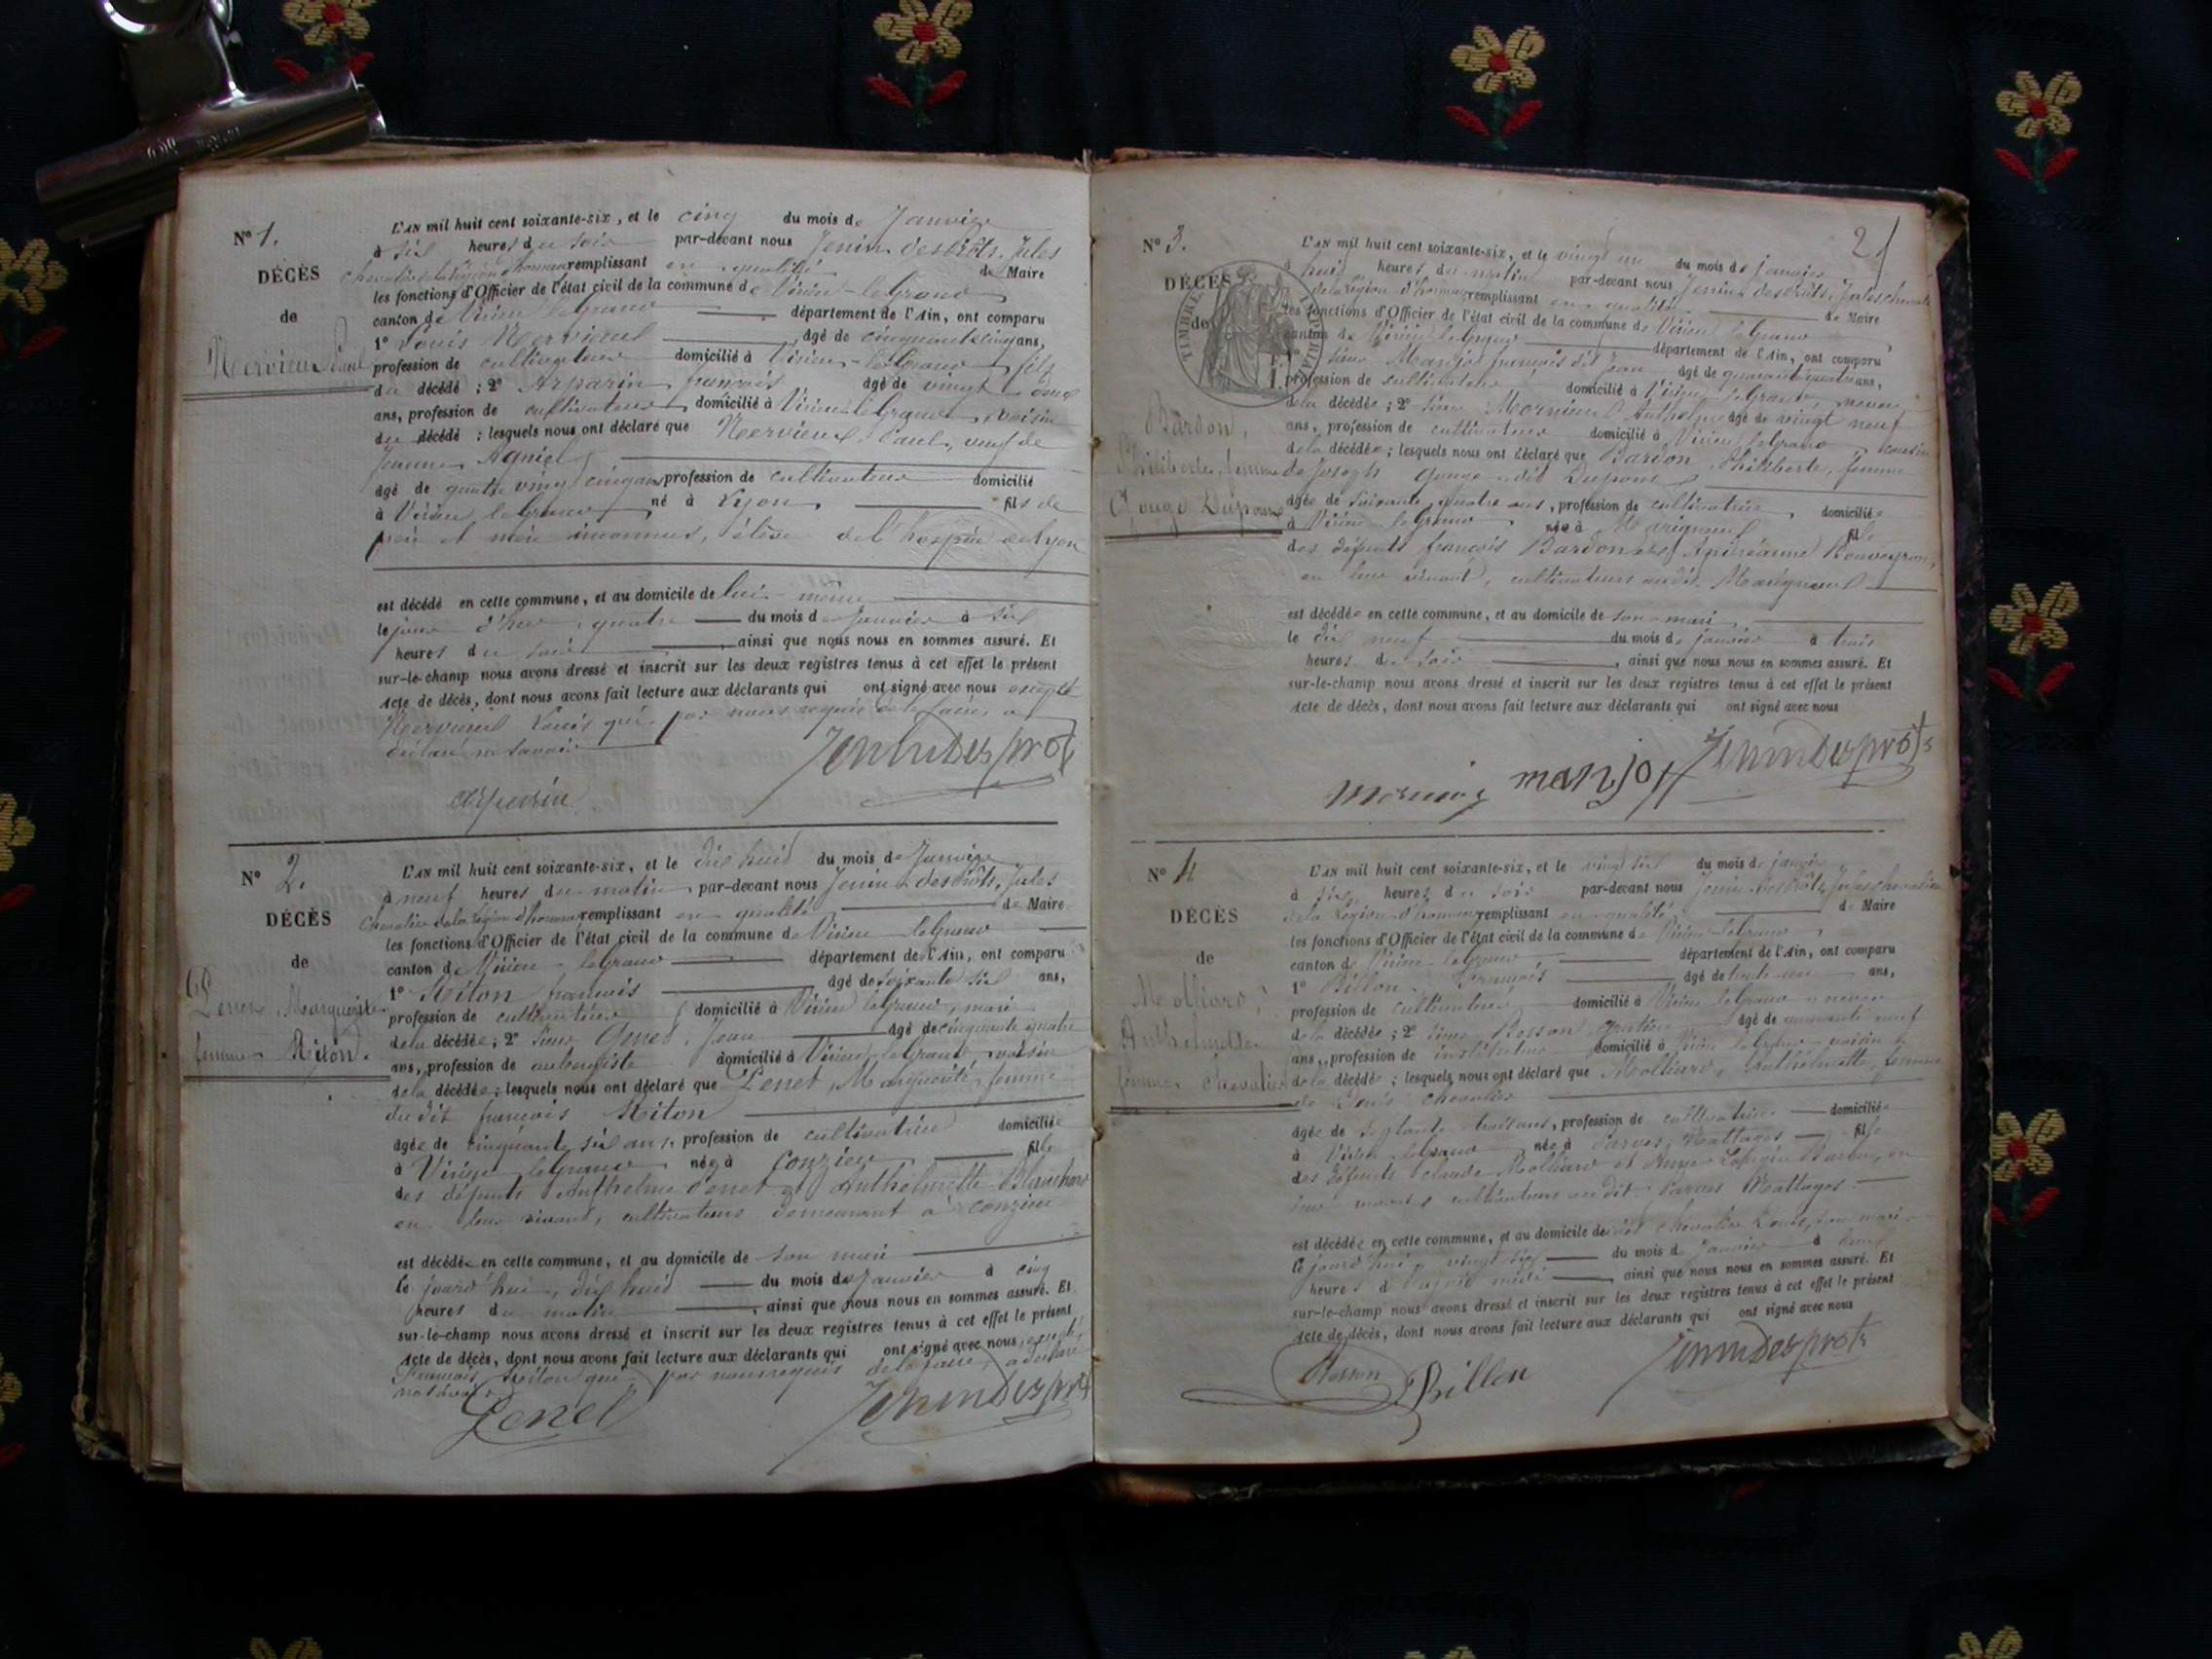 N° 1.
DÉCÈS
de
Nervieux Paul
L'AN mil huit cent soixante-six, et le cinq du mois de Janvier
à six heures du soir par-devant nous Jenin desprôts, Jules
chevalier de la légion d'honneur remplissant en qualité de Maire
les fonctions d'Officier de l'état civil de la commune de Virieu-le-Grand
canton de Virieu le grand département de l'Ain, ont comparu
1° Louis Nervieux âgé de cinquante cinq ans,
profession de cultivateur domicilié à Virieu-le-Grand fils
du décédé ; 2° Arparin françois âgé de vingt
ans, profession de cultivateur domicilié à Virieu le Grand, voisin
du décédé ; lesquels nous ont déclaré que Nervieux Paul, veuf de
Jeanne Agniel
âgé de quatre vingt cinq ans profession de cultivateur domicilié
à Virieu le Grand né à Lyon fils de
père et mère inconnus, élève de l'hospice de Lyon
est décédé en cette commune, et au domicile de lui-même
le jour d'hier, quatre du mois de Janvier à six
heures du soir, ainsi que nous nous en sommes assuré. Et
sur-le-champ nous avons dressé et inscrit sur les deux registres tenus à cet effet le présent
Acte de décès, dont nous avons fait lecture aux déclarants qui ont signé avec nous excepté
Nervieux Louis qui, par nous requis de le faire, a
déclaré ne savoir
Jenindesprots
arparin
N° 2.
DÉCÈS
de
Genet, Marguerite
femme Riton.
L'AN mil huit cent soixante-six, et le dix huit du mois de Janvier
à neuf heures du matin, par-devant nous Jenin desprôts, Jules
chevalier de la légion d'honneur remplissant en qualité de Maire
les fonctions d'Officier de l'état civil de la commune de Virieu le Grand
canton de Virieu-le-Grand département de l'Ain, ont comparu
1° Riton françois âgé de soixante six ans,
profession de cultivateur domicilié à Virieu le Grand, mari
de la décédée ; 2° sieur Genet, Jean âgé de cinquante quatre
ans, profession de aubergiste domicilié à Virieu-le-Grand, voisin
de la décédée ; lesquels nous ont déclaré que Genet, Marguerite, femme
du dit françois Riton
âgée de cinquante six ans, profession de cultivatrice domiciliée
à Virieu le Grand née à Conzieu fille
des défunts Anthelme Genet et Anthelmette Blanchard
en leur vivant, cultivateurs demeurant à conzieu
est décédée en cette commune, et au domicile de son mari
le jourd'hui, dix huit du mois de Janvier à cinq
heures du matin, ainsi que nous nous en sommes assuré. Et
sur-le-champ nous avons dressé et inscrit sur les deux registres tenus à cet effet le présent
Acte de décès, dont nous avons fait lecture aux déclarants qui ont signé avec nous, excepté
François Riton qui, par nous requis de le faire, a déclaré
ne savoir
Genet
Jenindesprots
21
N° 3.
DÉCÈS
de
TIMBRE IMPÉRIAL
Bardon,
Philiberte, femme
Gouge Dupont
L'AN mil huit cent soixante-six, et le vingt un du mois de janvier
à huit heures du matin par-devant nous Jenin desprôts, Jules chevalier
de la légion d'honneur remplissant en qualité de Maire
les fonctions d'Officier de l'état civil de la commune de Virieu le Grand
canton de Virieu le Grand département de l'Ain, ont comparu
1° sieur Manjot françois dit Jean âgé de quarante quatre ans,
profession de cultivateur domicilié à Virieu le Grand, neveu
de la décédée ; 2° sieur Anthelme âgé de vingt neuf
ans, profession de cultivateur domicilié à Virieu le Grand, cousin
de la décédée ; lesquels nous ont déclaré que Bardon, Philiberte, femme
de Joseph Gouge dit Dupont
âgée de soixante quatre ans, profession de cultivatrice, domiciliée
à Virieu le Grand née à Marignieu fille
des défunts françois Bardon et Bouveyron,
en leur vivant, cultivateurs audit Marignieu
est décédée en cette commune, et au domicile de son mari
le dix neuf du mois de janvier à trois
heures du soir, ainsi que nous nous en sommes assuré. Et
sur-le-champ nous avons dressé et inscrit sur les deux registres tenus à cet effet le présent
Acte de décès, dont nous avons fait lecture aux déclarants qui ont signé avec nous
manjot Jenindesprots
N° 4
DÉCÈS
de
Molliard,
Anthelmette
femme Chevalier
L'AN mil huit cent soixante-six, et le vingt six du mois de janvier
à six heures du soir par-devant nous Jenin desprôts, Jules chevalier
de la légion d'honneur remplissant en qualité de Maire
les fonctions d'Officier de l'état civil de la commune de Virieu-le-Grand
canton de Virieu-le-Grand département de l'Ain, ont comparu
1° Billon, François âgé de trente un ans,
profession de cultivateur domicilié à Virieu le Grand, neveu
de la décédée ; 2° sieur Rosson âgé de quarante neuf
ans, profession de instituteur domicilié à Virieu le Grand voisin
de la décédée ; lesquels nous ont déclaré que Molliard, Anthelmette, femme
de Louis Chevalier
âgée de septante trois ans, profession de cultivatrice domiciliée
à Virieu le Grand née à Parves, Nattages fille
des défunts Claude Molliard et en
leur vivant cultivateurs audit Parves Nattages.
est décédée en cette commune, et au domicile de dit chevalier Louis, son mari
le jourd'hui, vingt six du mois de Janvier à deux
heures d l'après midi, ainsi que nous nous en sommes assuré. Et
sur-le-champ nous avons dressé et inscrit sur les deux registres tenus à cet effet le présent
Acte de décès, dont nous avons fait lecture aux déclarants qui ont signé avec nous
Rosson Billon Jenindesprots